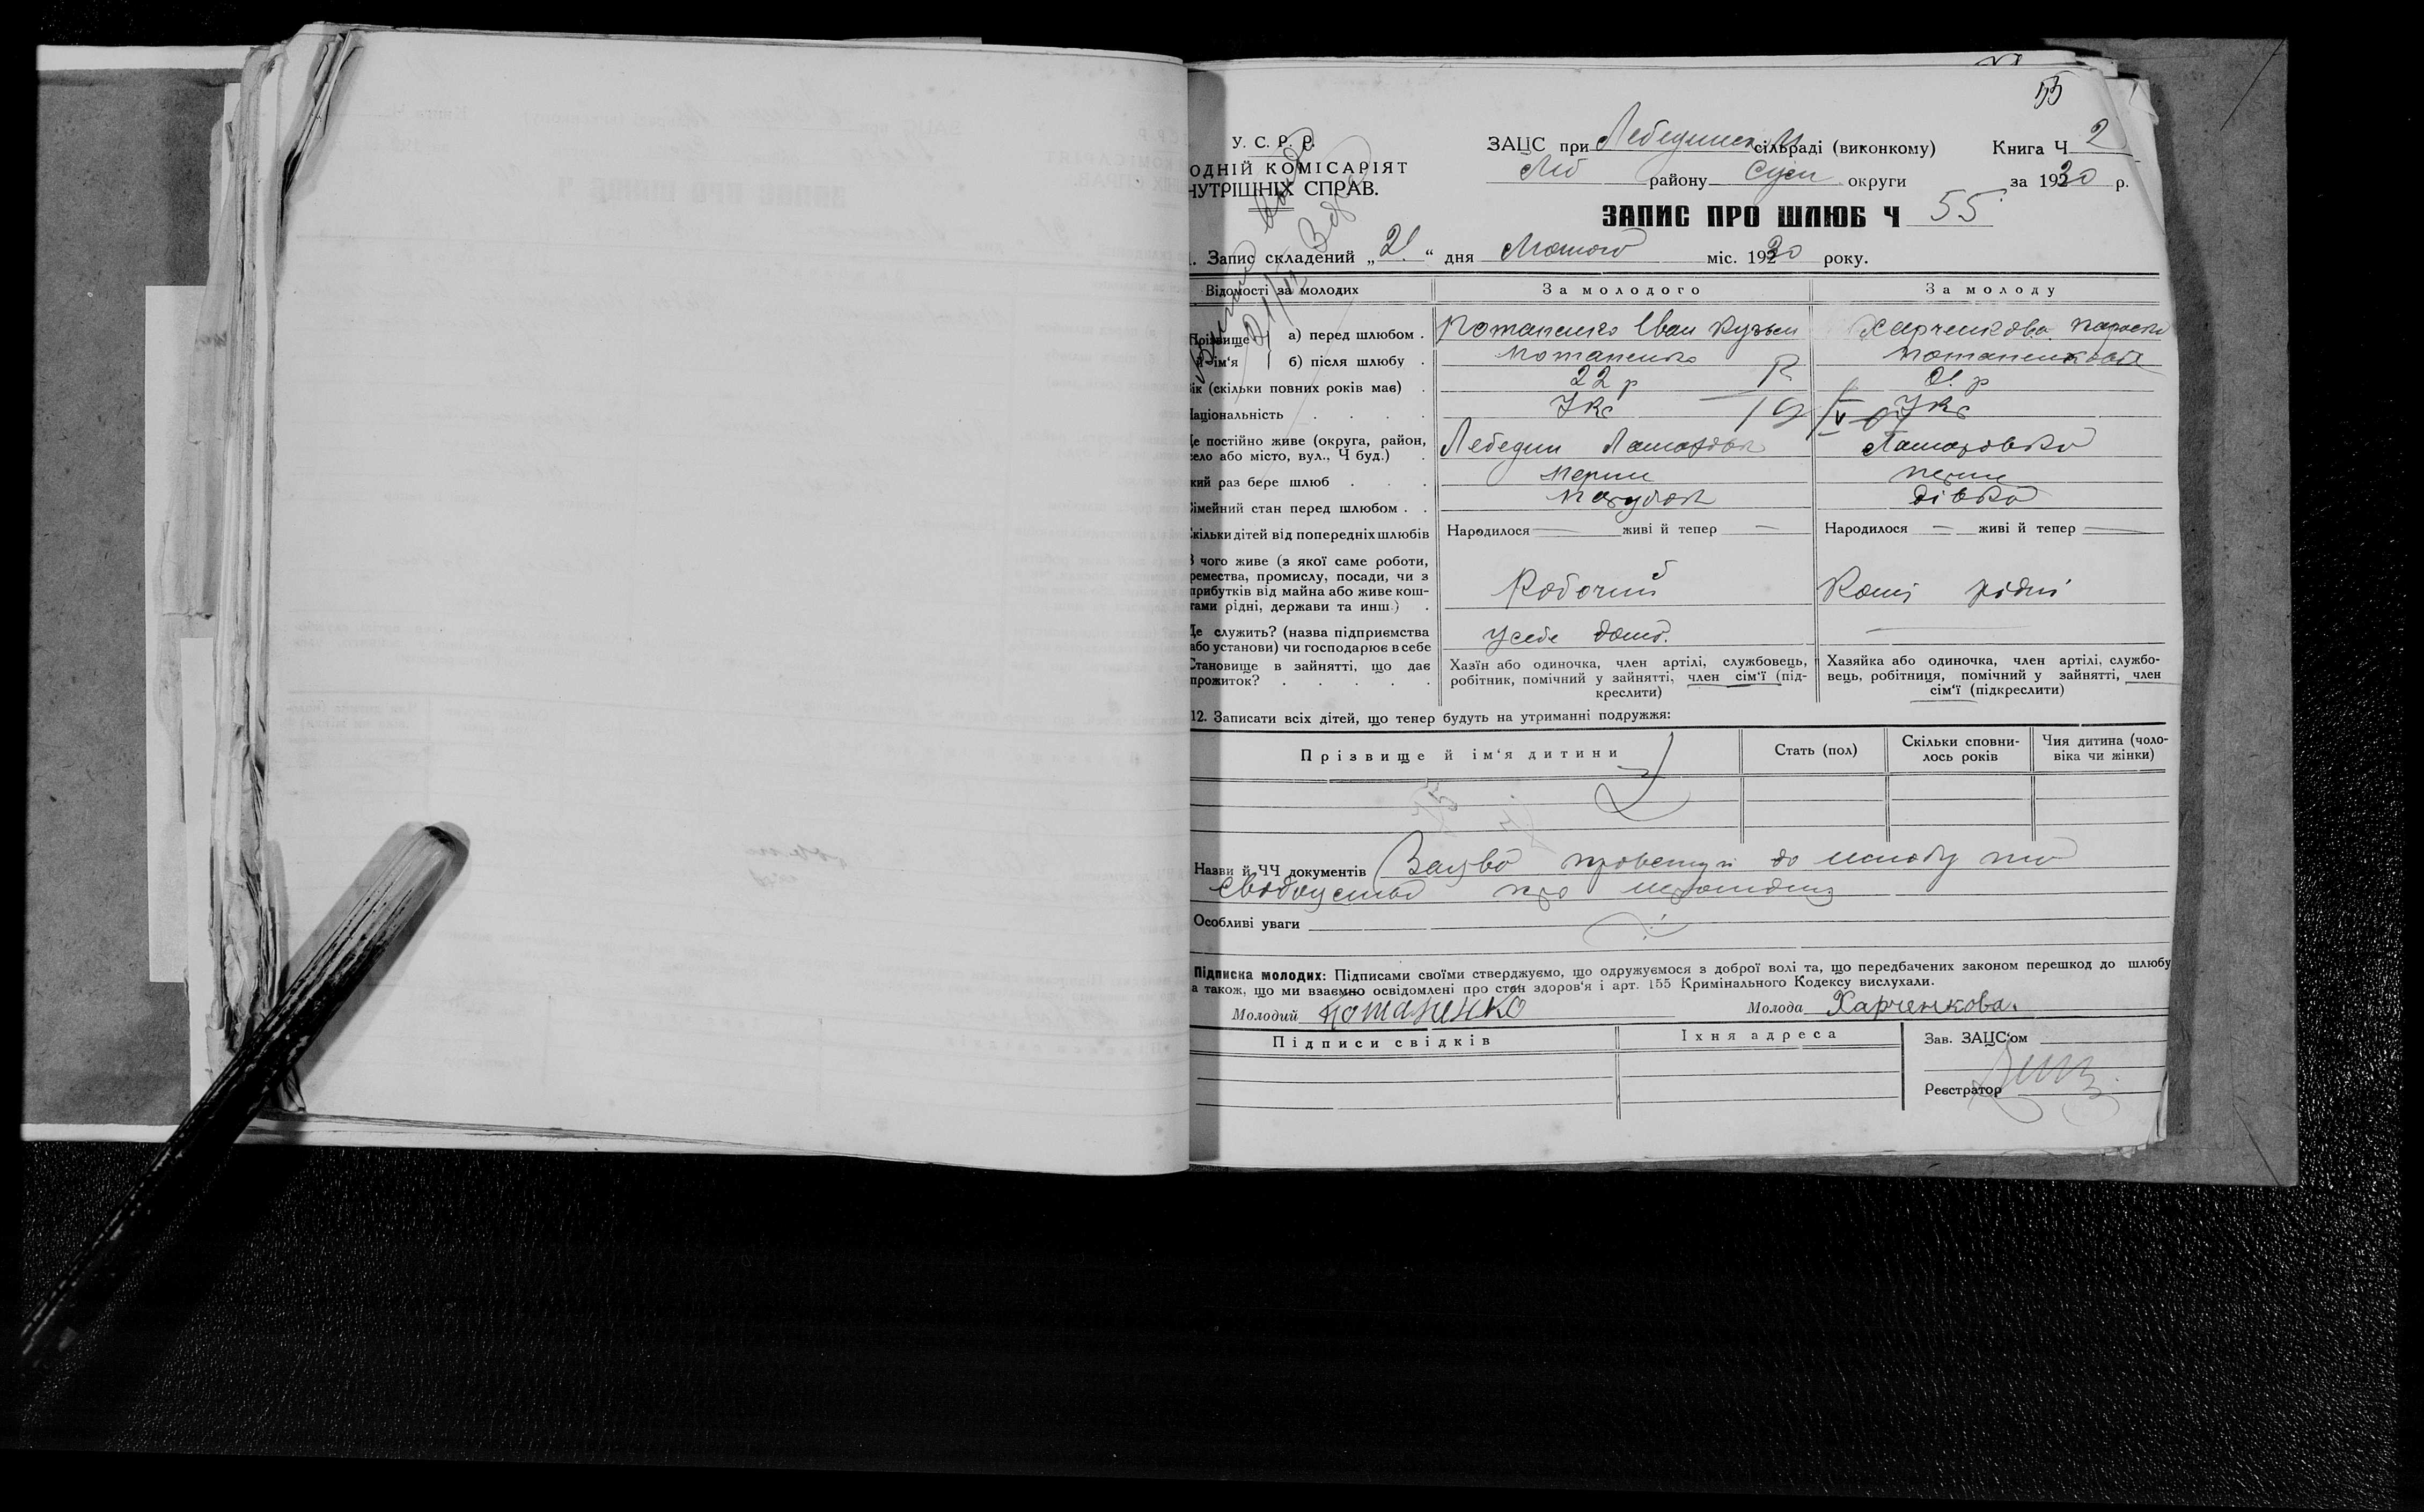 55
У. С. Р. Р.
ОДНІЙ КОМІСАРІЯТ
НУТРІШНІХ СПРАВ.
ЗАЦС при Лебединск сільраді (виконкому) Книга Ч 2
Леб району Сум округи за 1930 р.
ЗАПИС ПРО ШЛЮБ Ч 55
1. Запис складений „21“ дня Лютого міс. 1930 року.
Відомості за молодих За молодого За молоду
Прізвище й ім'я а) перед шлюбом . Потапенко Іван Кузьм Харченкова Параска
б) після шлюбу . Потапенко Потапенкова
ік (скільки повних років має) . 22 р 21 р
Національність . . . . Укр Укр
е постійно живе (округа, район, село або місто, вул., Ч буд.) . Лебедин
кий раз бере шлюб . . . перший перш
імейний стан перед шлюбом . . парубок дівка
кільки дітей від попередніх шлюбів Народилося — живі й тепер — Народилося — живі й тепер —
З чого живе (з якої саме роботи,
ремества, промислу, посади, чи з
прибутків від майна або живе кош-
тами рідні, держави та инш.) . Робочий Кошт рідні
Де служить? (назва підприємства
або установи) чи господарює в себе у себе дома. —
Становище в зайнятті, що дає
прожиток? . . . . .
Хазїн або одиночка, член артілі, службовець,
робітник, помічний у зайнятті, член сім'ї (під-
креслити)
Хазяйка або одиночка, член артілі, службо-
вець, робітниця, помічний у зайнятті, член
сім'ї (підкреслити)
12. Записати всіх дітей, що тепер будуть на утриманні подружжя:
Прізвище й ім'я дитини Стать (пол) Скільки сповни-
лось років Чия дитина (чоло-
віка чи жінки)
Назви й ЧЧ документів Заява до шлюбу та
про
Особливі уваги
Підписка молодих: Підписами своїми стверджуємо, що одружуємося з доброї волі та, що передбачених законом перешкод до шлюбу
а також, що ми взаємно освідомлені про стан здоров'я і арт. 155 Кримінального Кодексу вислухали.
Молодий Потапенко Молода Харченкова.
Підписи свідків Їхня адреса Зав. ЗАЦС'ом
Реєстратор